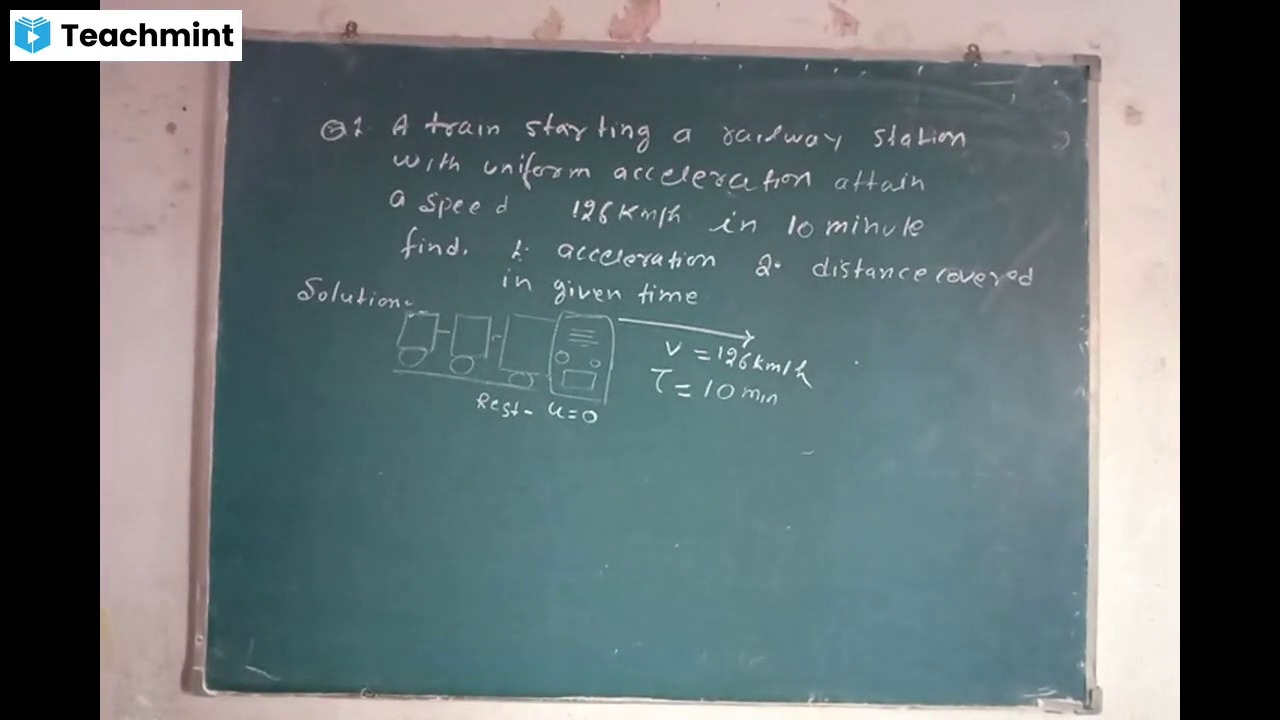 Teachmint
Q1. A train starting a railway station
with uniform acceleration attain
a speed 126 Km/h in 10 minute
find. 1. acceleration 2. distance covered
in given time
Solution-
V = 126 km/h
T = 10 min
Rest- u=0